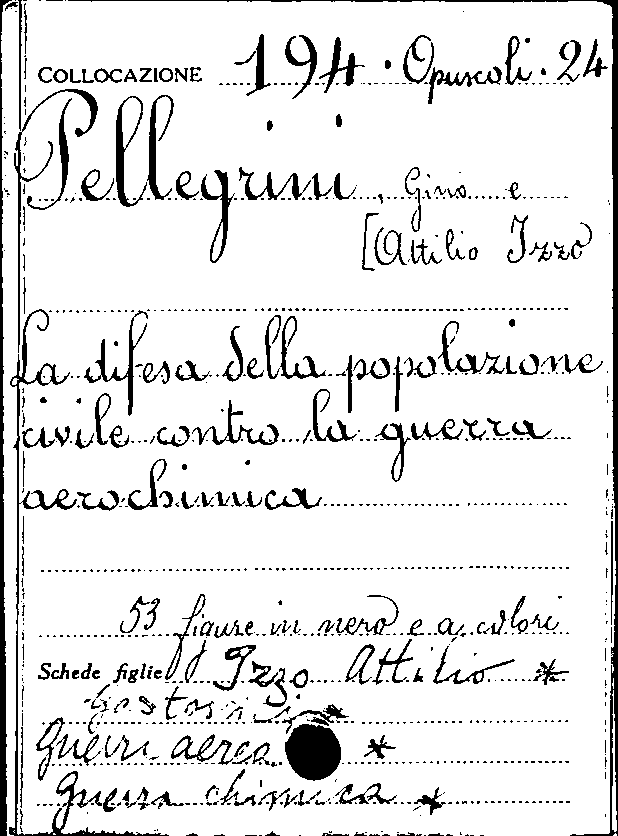 COLLOCAZIONE 194 · Opuscoli · 24
Pellegrini, Gino e
[Attilio Izzo
La difesa della popolazione
civile contro la guerra
aerochimica
53 figure in nero e a colori
Schede figlie Izzo Attilio *
*
Guerra aerea *
Guerra chimica *